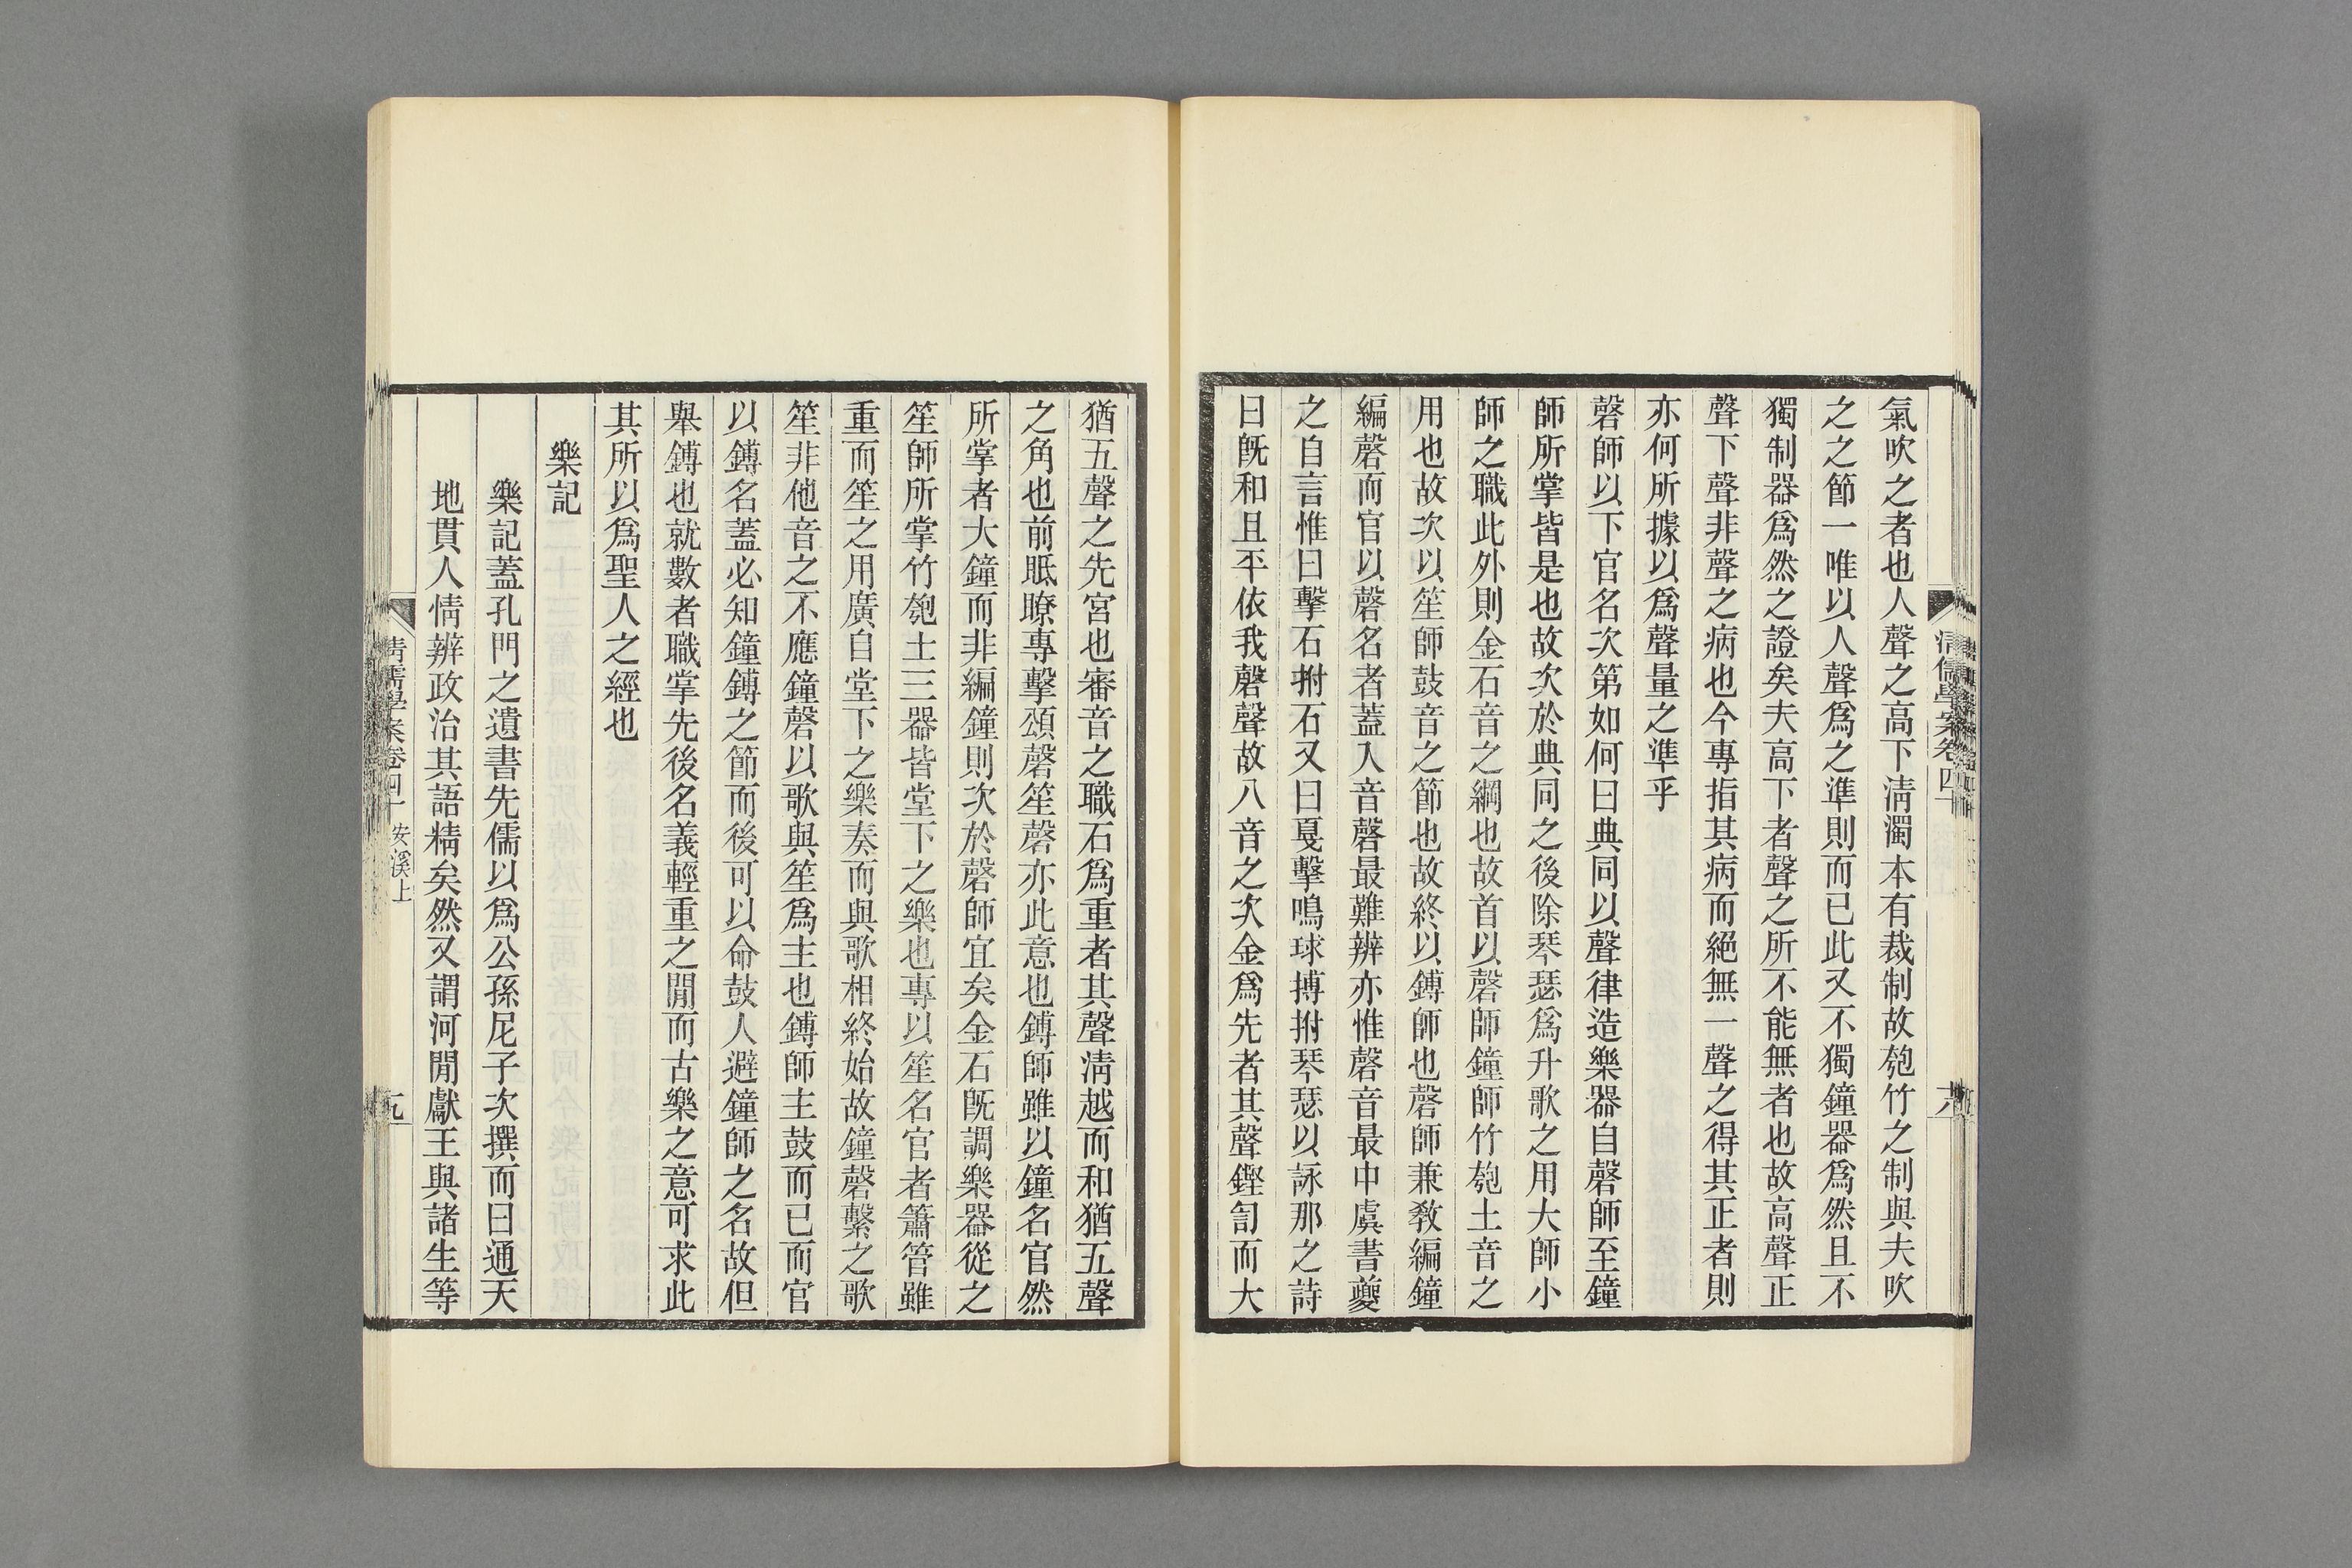 氣吹之者也人聲之高下淸濁本有裁制故匏竹之制與夫吹
之之節一唯以人聲爲之準則而已此又不獨鐘器爲然且不
獨制器爲然之證矣夫高下者聲之所不能無者也故高聲正
聲下聲非聲之病也今專指其病而絕無一聲之得其正者則
亦何所據以爲聲量之準乎
磬師以下官名次第如何曰典同以聲律造樂器自磬師至鐘
師所掌皆是也故次於典同之後除琴瑟爲升歌之用大師小
師之職此外則金石音之綱也故首以磬師鐘師竹匏土音之
用也故次以笙師鼓音之節也故終以鎛師也磬師兼敎編鐘
編磬而官以磬名者蓋入音磬最難辨亦惟磬音最中虞書夔
之自言惟曰擊石拊石又曰戛擊鳴球搏拊琴瑟以詠那之詩
曰旣和且平依我磬聲故八音之次金爲先者其聲鏗訇而大
猶五聲之先宮也審音之職石爲重者其聲淸越而和猶五聲
之角也前眡瞭專擊頌磬笙磬亦此意也鎛師雖以鐘名官然
所掌者大鐘而非編鐘則次於磬師宜矣金石旣調樂器從之
笙師所掌竹匏土三器皆堂下之樂也專以笙名官者簫管雖
重而笙之用廣自堂下之樂奏而與歌相終始故鐘磬繫之歌
笙非他音之不應鐘磬以歌與笙爲主也鎛師主鼓而已而官
以鎛名蓋必知鐘鎛之節而後可以命鼓人避鐘師之名故但
舉鎛也就數者職掌先後名義輕重之閒而古樂之意可求此
其所以爲聖人之經也
樂記
樂記蓋孔門之遺書先儒以爲公孫尼子次撰而曰通天
地貫人情辨政治其語精矣然又謂河閒獻王與諸生等
淸儒學案卷四十 安溪上